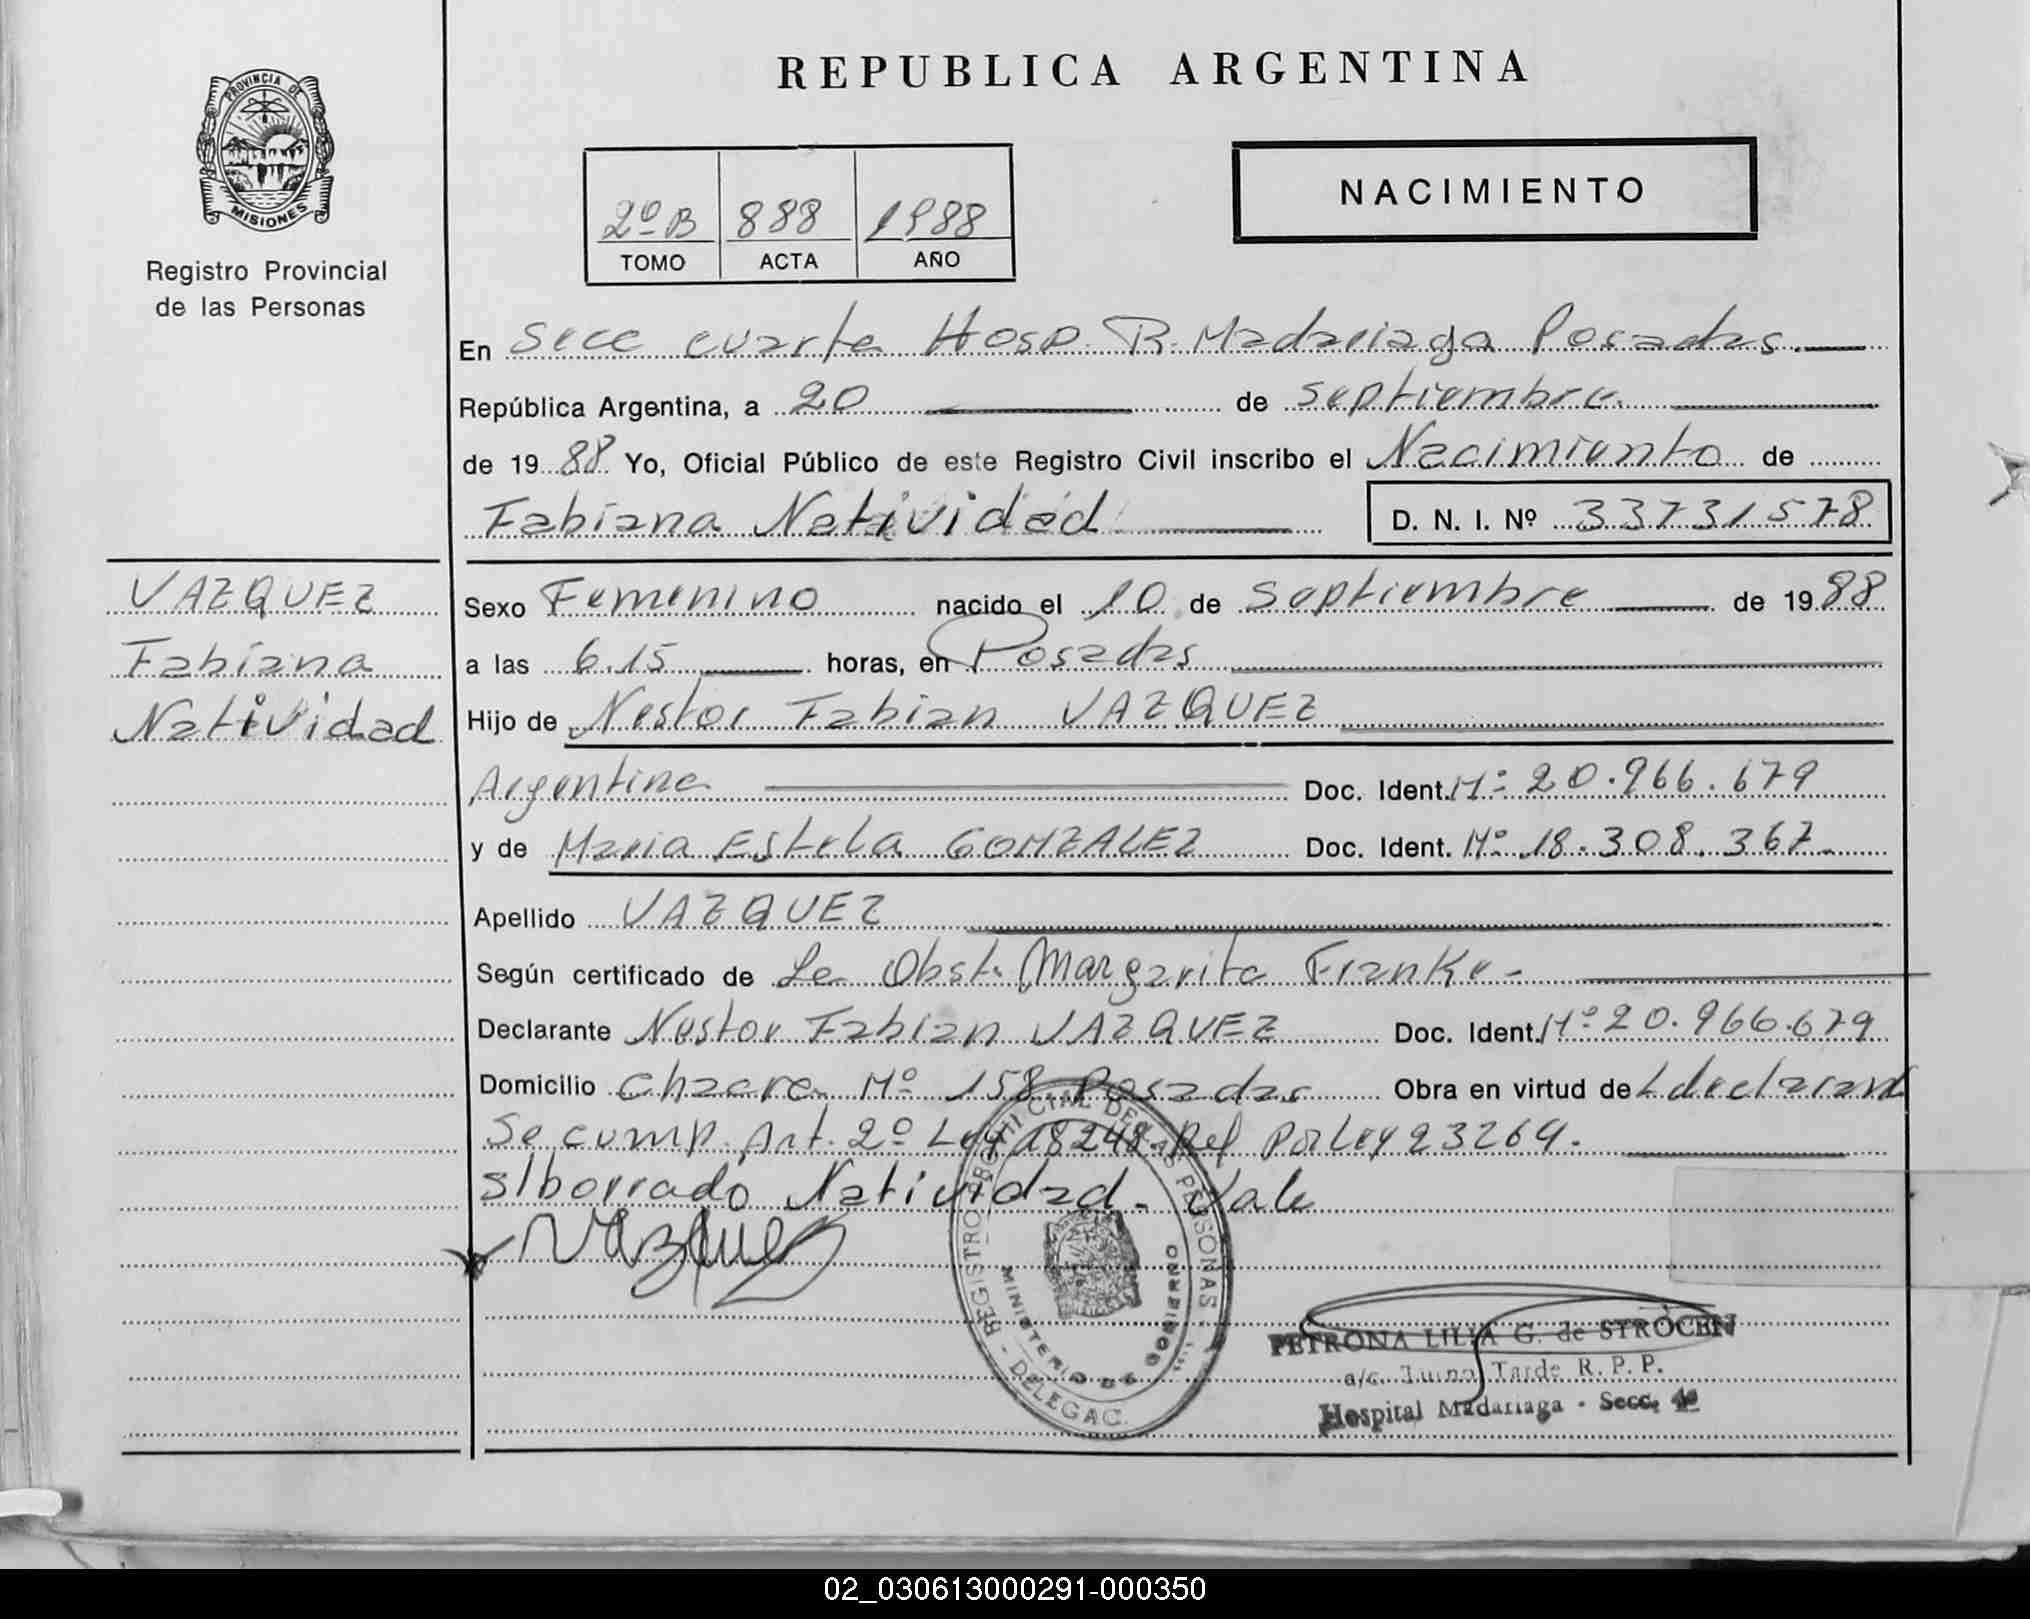 PROVINCIA DE
MISIONES
Registro Provincial
de las Personas
REPUBLICA ARGENTINA
2º B 888 1988
TOMO ACTA AÑO
NACIMIENTO
En Secc cuarta Hosp. R. Madariaga Posadas.
República Argentina, a 20 de septiembre.
de 1988 Yo, Oficial Público de este Registro Civil inscribo el Nacimiento de
Fabiana Natividad D. N. I. Nº 33731578
VAZQUEZ
Fabiana
Natividad
Sexo Femenino nacido el 10 de Septiembre de 1988
a las 6.15 horas, en Posadas
Hijo de Nestor Fabian VAZQUEZ
Argentina Doc. Ident. Nº 20.966.679
y de Maria Estela GONZALEZ Doc. Ident. Nº 18.308.367.
Apellido VAZQUEZ
Según certificado de La Obst. Margarita Franke-
Declarante Nestor Fabian VAZQUEZ Doc. Ident. Nº 20.966.679
Domicilio Chacra Nº 158 Posadas Obra en virtud de L declarant
Se cump. Art. 2º Ley 18248. Ref por Ley 23264.
s/borrado Natividad. Vale
Vazquez
REGISTRO PROVINCIAL DE LAS PERSONAS - DELEGAC.
MINISTERIO DE GOBIERNO
PETRONA LILIA G. de STROCEN
a/c. Turno Tarde R. P. P.
Hospital Madariaga - Secc. 4a
02_030613000291-000350